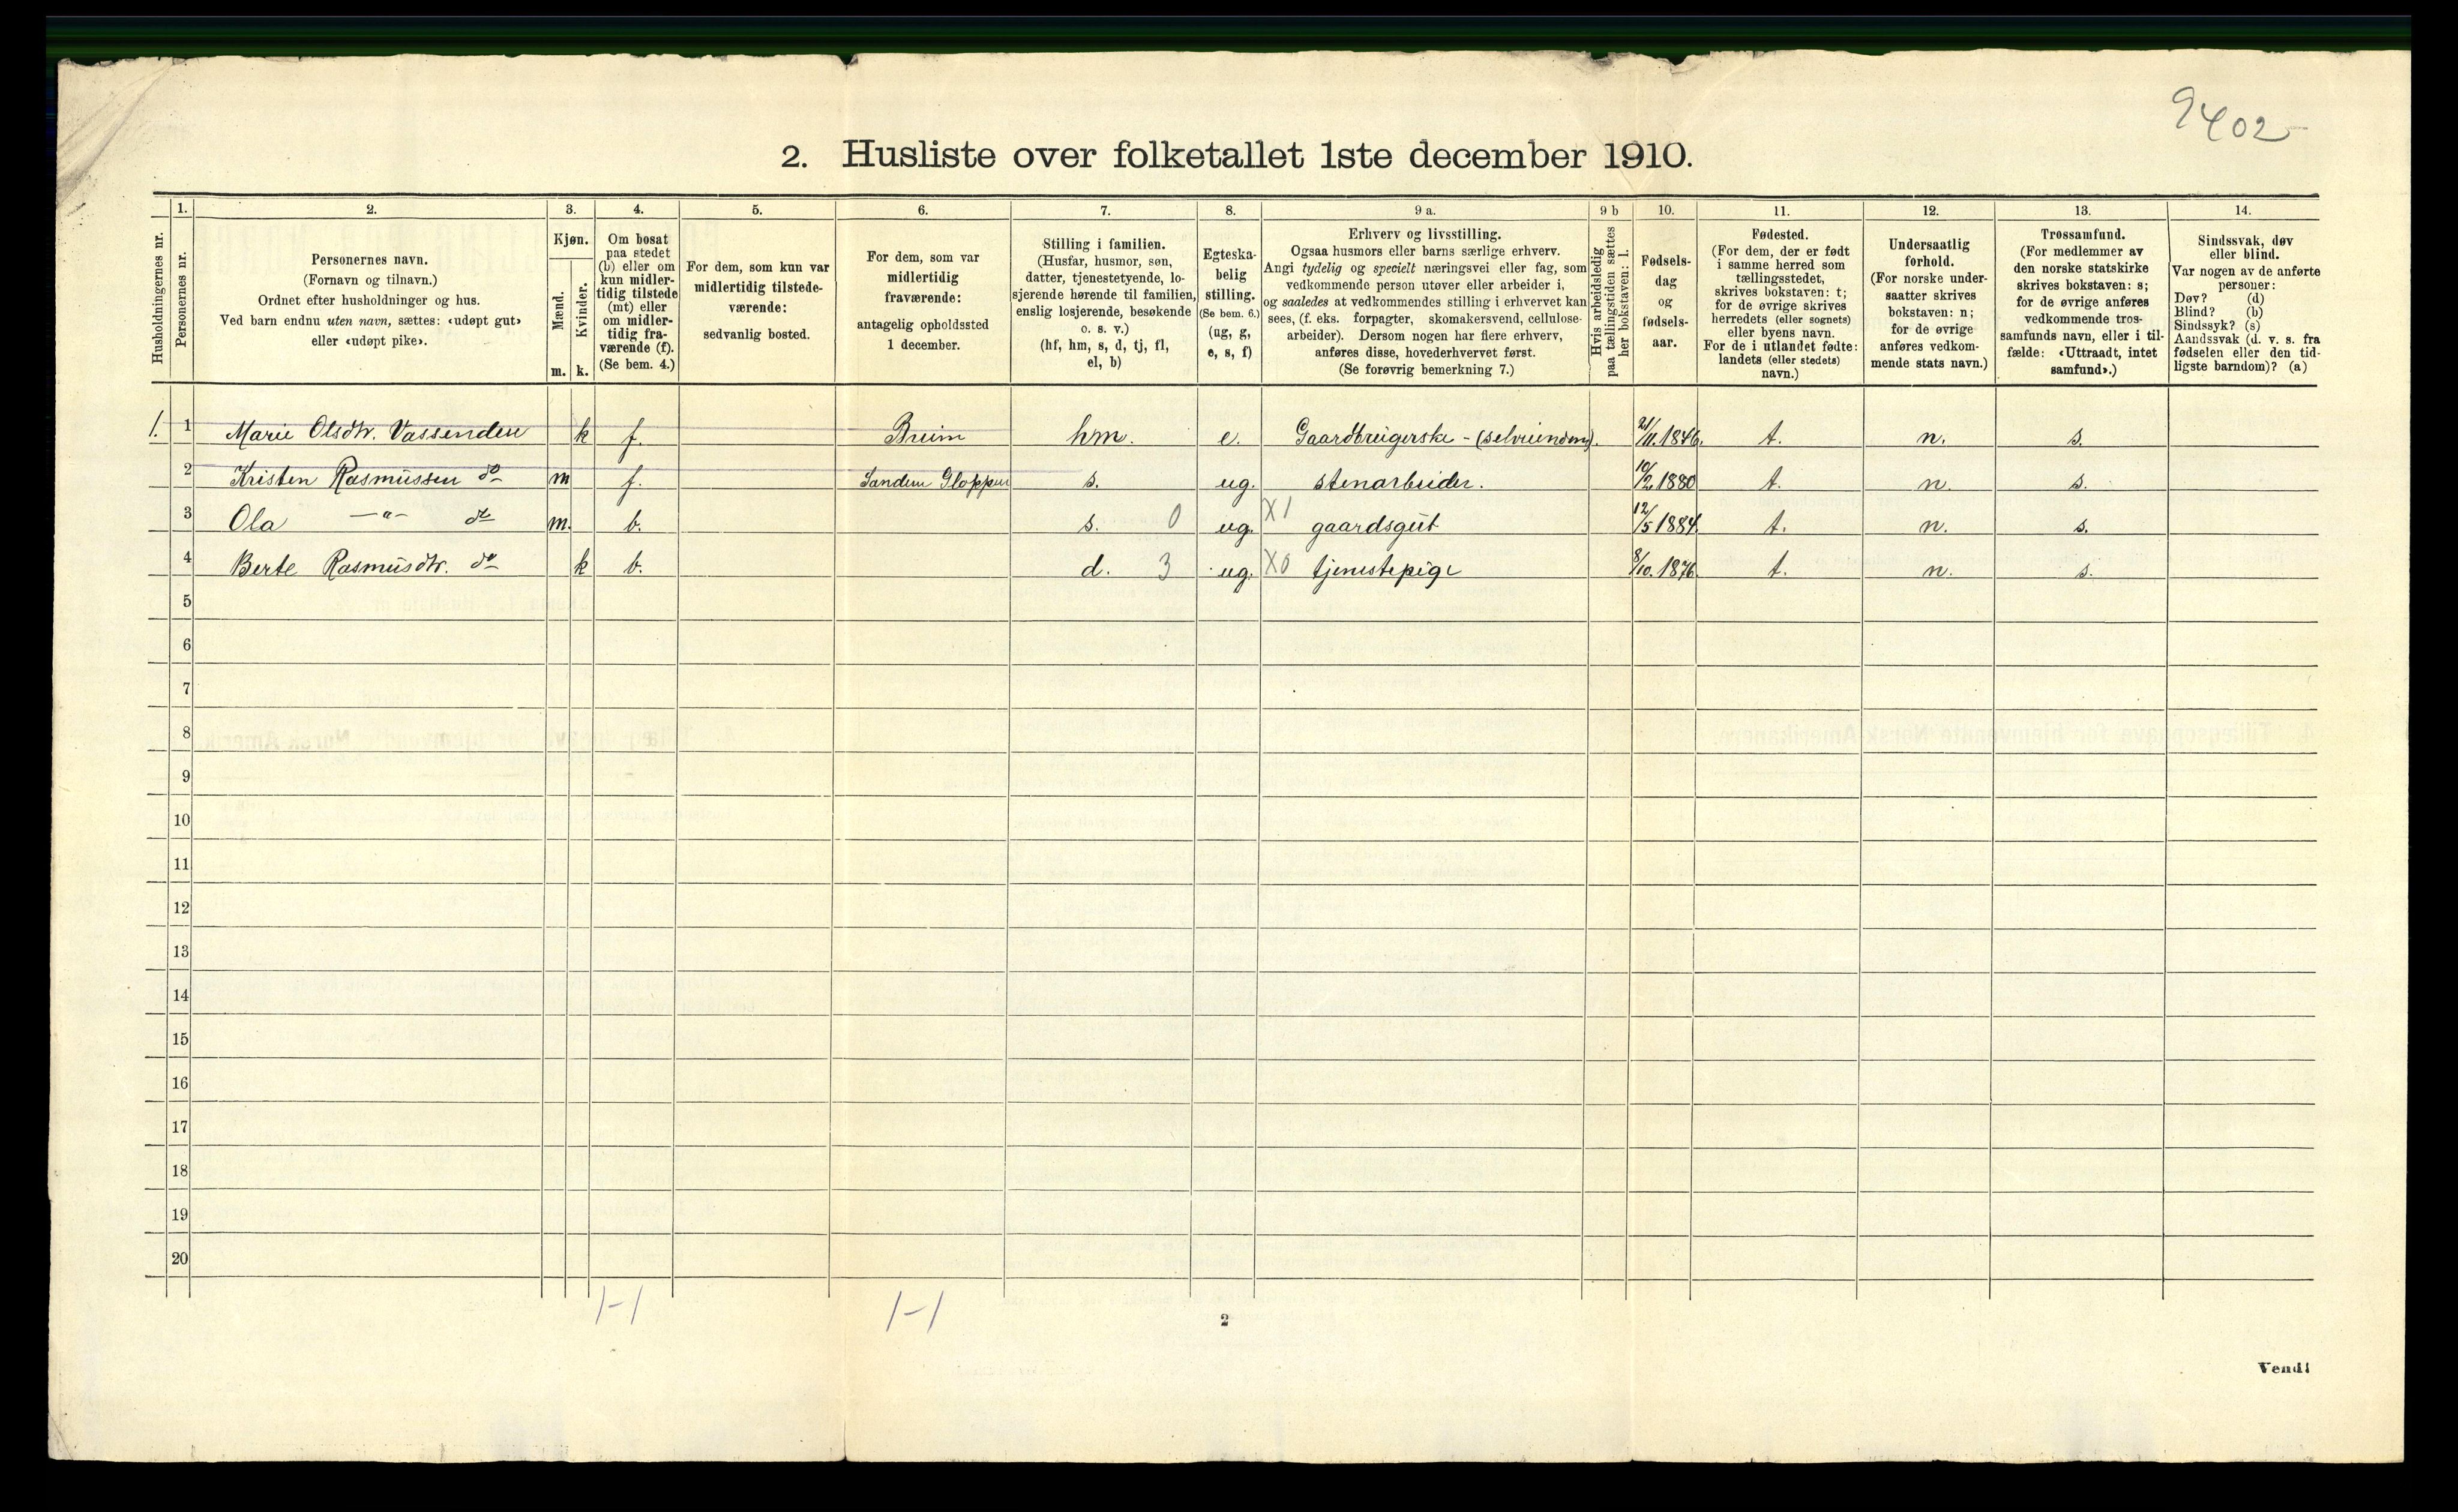 9402
2. Husliste over folketallet 1ste december 1910.
Husholdningernes nr.
1. Personernes nr.
2. Personernes navn.
(Fornavn og tilnavn.)
Ordnet efter husholdninger og hus.
Ved barn endnu uten navn, sættes: «udøpt gut»
eller «udøpt pike».
3. Kjøn.
Mænd. m.
Kvinder. k.
4. Om bosat
paa stedet
(b) eller om
kun midler-
tidig tilstede
(mt) eller
om midler-
tidig fra-
værende (f).
(Se bem. 4.)
5. For dem, som kun var
midlertidig tilstede-
værende:
sedvanlig bosted.
6. For dem, som var
midlertidig
fraværende:
antagelig opholdssted
1 december.
7. Stilling i familien.
(Husfar, husmor, søn,
datter, tjenestetyende, lo-
sjerende hørende til familien,
enslig losjerende, besøkende
o. s. v.)
(hf, hm, s, d, tj, fl,
el, b)
8. Egteska-
belig
stilling.
(Se bem. 6.)
(ug, g,
e, s, f)
9 a. Erhverv og livsstilling.
Ogsaa husmors eller barns særlige erhverv.
Angi tydelig og specielt næringsvei eller fag, som
vedkommende person utøver eller arbeider i,
og saaledes at vedkommendes stilling i erhvervet kan
sees, (f. eks. forpagter, skomakersvend, cellulose-
arbeider). Dersom nogen har flere erhverv,
anføres disse, hovederhvervet først.
(Se forøvrig bemerkning 7.)
9 b Hvis arbeidsledig
paa tællingstiden sættes
her bokstaven: l.
10. Fødsels-
dag
og
fødsels-
aar.
11. Fødested.
(For dem, der er født
i samme herred som
tællingsstedet,
skrives bokstaven: t;
for de øvrige skrives
herredets (eller sognets)
eller byens navn.
For de i utlandet fødte:
landets (eller stedets)
navn.)
12. Undersaatlig
forhold.
(For norske under-
saatter skrives
bokstaven: n;
for de øvrige
anføres vedkom-
mende stats navn.)
13. Trossamfund.
(For medlemmer av
den norske statskirke
skrives bokstaven: s;
for de øvrige anføres
vedkommende tros-
samfunds navn, eller i til-
fælde: «Uttraadt, intet
samfund».)
14. Sindssvak, døv
eller blind.
Var nogen av de anførte
personer:
Døv? (d)
Blind? (b)
Sindssyk? (s)
Aandssvak (d. v. s. fra
fødselen eller den tid-
ligste barndom)? (a)
1. 1 Marie Olsdtr. Vassenden k f. Breim hm. e. Gaardbrugerske - (selveiendom). 21/11.1846. t. n. s.
2 Kristen Rasmussen do m f. Sandem Gloppen s. ug. stenarbeider. 10/2 1880 t. n. s.
3 Ola —"— do m. b. s. 0 ug. X1 gaardsgut 12/5 1884. t. n. s.
4 Berte Rasmusdtr. do k b. d. 3 ug. X0 tjenestepige 8/10.1876 t. n. s.
5
6
7
8
9
10
11
12
13
14
15
16
17
18
19
20
1-1 1-1
2
Vend!